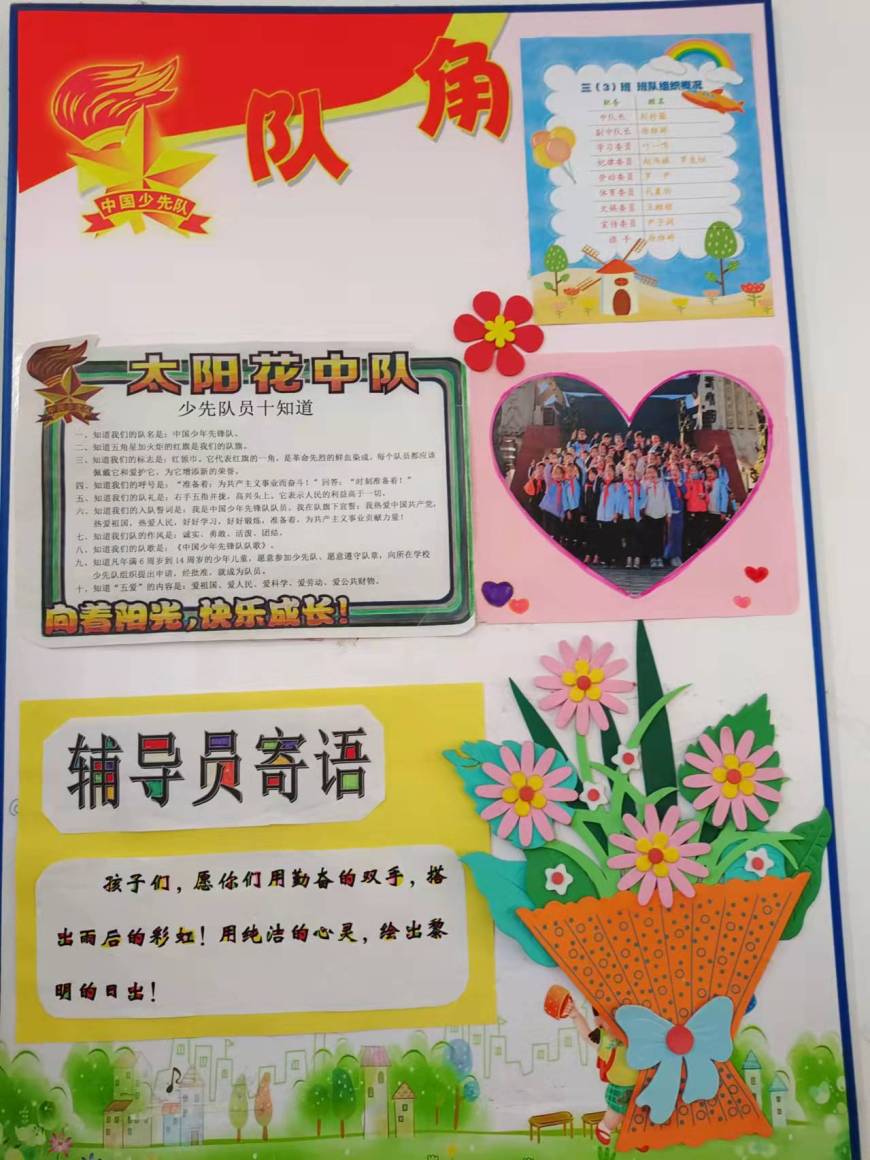 队角
中国少先队
三（3）班 班队组织概况
职务 姓名
中队长
副中队长
学习委员
纪律委员
劳动委员
体育委员
文娱委员
宣传委员
旗手
太阳花中队
少先队员十知道
一、知道我们的队名是：中国少年先锋队。
二、知道五角星加火炬的红旗是我们的队旗。
三、知道我们的标志是：红领巾。它代表红旗的一角，是革命先烈的鲜血染成，每个队员都应该
佩戴它和爱护它，为它增添新的荣誉。
四、知道我们的呼号是：“准备着：为共产主义事业而奋斗！”回答：“时刻准备着！”
五、知道我们的队礼是：右手五指并拢，高兴头上，它表示人民的利益高于一切。
六、知道我们的入队誓词是：我是中国少年先锋队队员。我在队旗下宣誓：我热爱中国共产党，
热爱祖国，热爱人民，好好学习，好好锻炼，准备着，为共产主义事业贡献力量！
七、知道我们队的作风是：诚实、勇敢、活泼、团结。
八、知道我们的队歌是：《中国少年先锋队队歌》。
九、知道凡年满6周岁到14周岁的少年儿童，愿意参加少先队、愿意遵守队章，向所在学校
少先队组织提出申请，经批准，就成为队员。
十、知道“五爱”的内容是：爱祖国、爱人民、爱科学、爱劳动、爱公共财物。
向着阳光，快乐成长！
辅导员寄语
孩子们，愿你们用勤奋的双手，搭
出雨后的彩虹！用纯洁的心灵，绘出黎
明的日出！